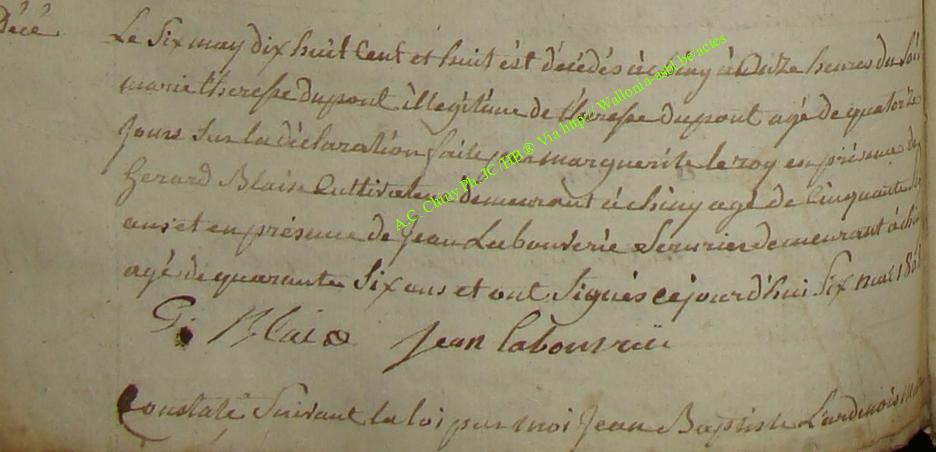 Décé
Le Six may dix huit Cent et huit est décédés à chiny à onze heures du Soir
marie therese dupont illégitime de therese dupont agé de quatorze
Jours Sur la déclaration faite par marguerite le roy en présence de
Gerard Blaise Cultivateur demeurant à chiny age de Cinquante
ans et en présence de Jean Labouverie Serurier demeurant à chi
agé de quarante Six ans et ont Signés cejourd'hui Six mai
G. Blaise Jean labouverie
Constaté Suivant la loi par moi Jean Baptiste Lardinois
A.C. Chiny Ph. JC /HB ® Via http://Wallonia-asbl.be/actes